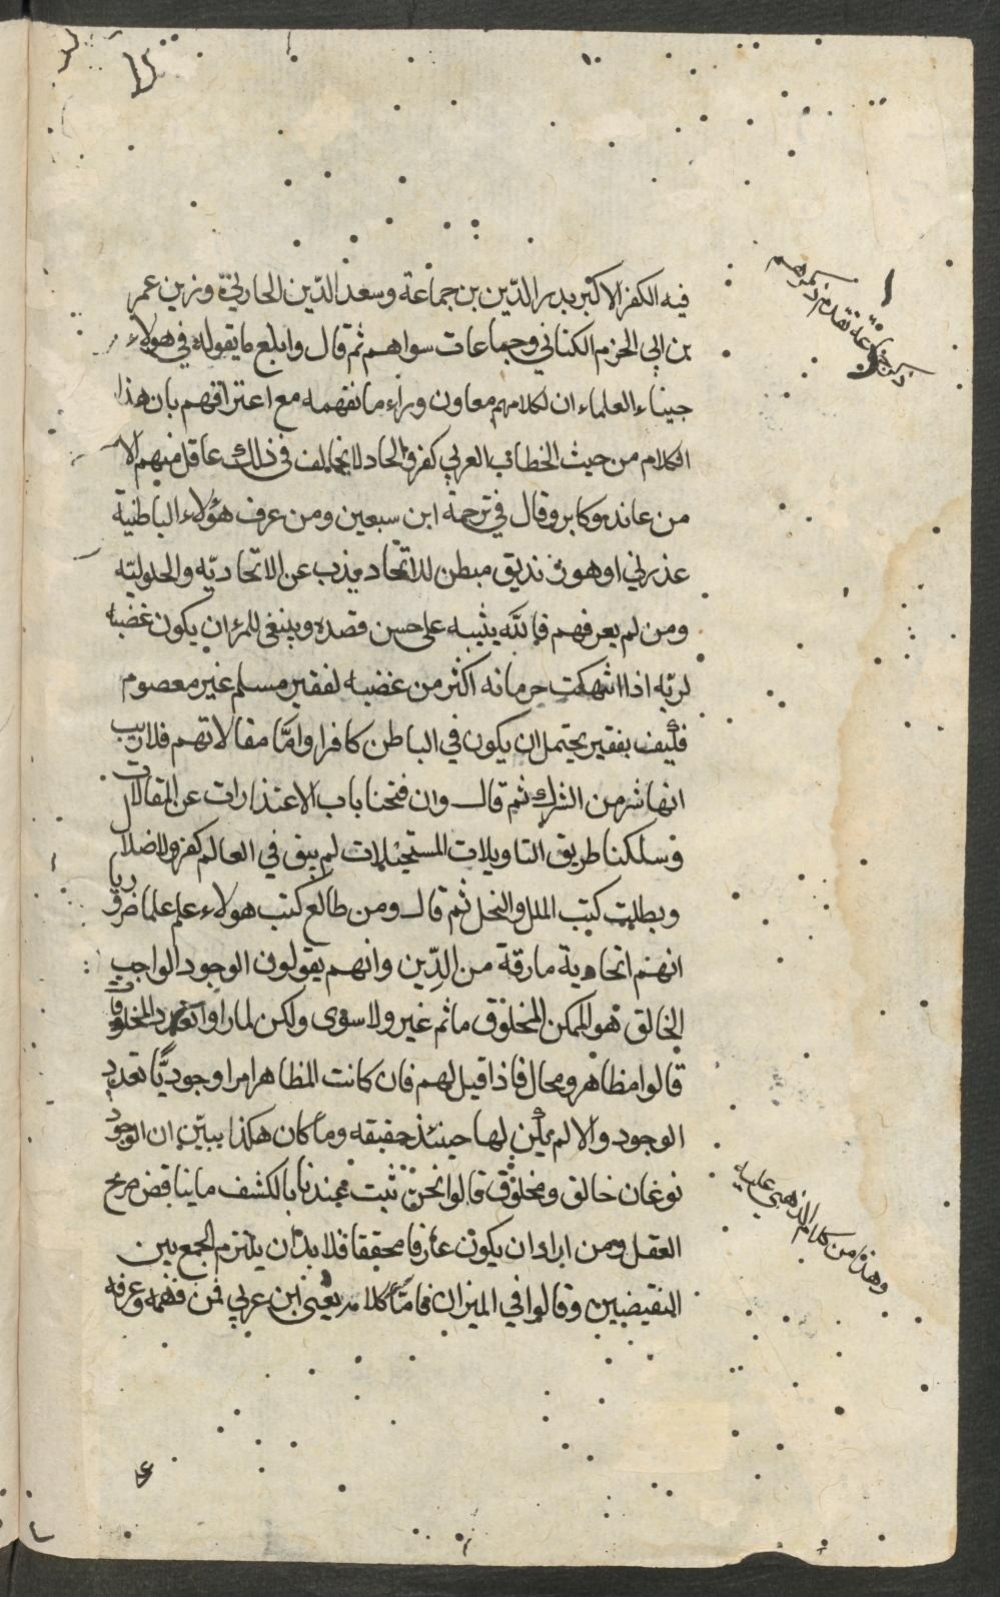 فيه الكفر الاكبر بدر الدّين بن جماعة وسعد الدّين الحارثي وزين عمر
بن ابي الحزم الكتاني وجماعات سواهم ثم قال وابلغ ما يقوله في هولاء
جبناء العلماء ان لكلامهم معاون وراء ما نفهمه مع اعترافهم بان هذا
الكلام من حيث الخطاب العربي كفر والحاد لا يخالف في ذلك عاقل منهم الا
من عاند وكابر وقال في ترجمة ابن سبعين ومن عرف هؤلاء الباطنية
عذرني او هو زنديق مبطن للاتحاد يذب عن الاتحاديّه والحلوليّه
ومن لم يعرفهم فاللّه يثيبه على حسن قصده وينبغى للمرء ان يكون غضبه
لربّه اذا انتهكت حرماته اكثر من غضبه لفقير مسلم غير معصوم
فكيف بفقير يحتمل ان يكون في الباطن كافرا وامّا مقالاتهم فلا ريب
انها شر من الشرك ثم قال وان فتحنا باب الاعتذارات عن المقالات
وسلكنا طريق التاويلات المستحيلات لم يبق في العالم كفر ولا ضلال
وبطلت كتب الملل والنحل ثم قال ومن طالع كتب هولاء علم علما ضروريا
انهم اتحادية مارقة من الدّين وانهم يقولون الوجود الواجب
الخالق هو الممكن المخلوق ما ثم غير ولا سوى ولكن لما راوا تعدد المخلوقات
قالوا مظاهر ومحال فاذا قيل لهم فان كانت المظاهر امرا وجوديًّا تعدد
الوجود والا لم يكن لها حينئذ حقيقه وما كان هكذا يبيّن ان الوجود
نوعان خالق ومخلوق قالوا نحن ثبت عندنا بالكشف ما يناقض صريح
العقل ومن اراد ان يكون عارفا محققا فلا بد ان يلتزم الجمع بين
النقيضين وقالوا في الميزان فامّا كلامه يعني ابن عربي فمن فهمه وعرفه
وهذا من كلام الذهبي عليه